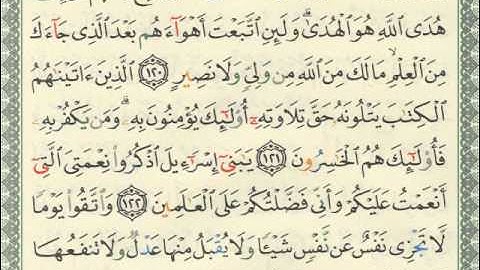 هُدَى ٱللَّهِ هُوَ ٱلْهُدَىٰ ۗ وَلَئِنِ ٱتَّبَعْتَ أَهْوَآءَهُم بَعْدَ ٱلَّذِى جَآءَكَ
مِنَ ٱلْعِلْمِ ۙ مَا لَكَ مِنَ ٱللَّهِ مِن وَلِىٍّ وَلَا نَصِيرٍ ١٢٠ ٱلَّذِينَ ءَاتَيْنَٰهُمُ
ٱلْكِتَٰبَ يَتْلُونَهُۥ حَقَّ تِلَاوَتِهِۦٓ أُو۟لَٰٓئِكَ يُؤْمِنُونَ بِهِۦ ۗ وَمَن يَكْفُرْ بِهِۦ
فَأُو۟لَٰٓئِكَ هُمُ ٱلْخَٰسِرُونَ ١٢١ يَٰبَنِىٓ إِسْرَٰٓءِيلَ ٱذْكُرُوا۟ نِعْمَتِىَ ٱلَّتِىٓ
أَنْعَمْتُ عَلَيْكُمْ وَأَنِّى فَضَّلْتُكُمْ عَلَى ٱلْعَٰلَمِينَ ١٢٢ وَٱتَّقُوا۟ يَوْمًا
لَّا تَجْزِى نَفْسٌ عَن نَّفْسٍ شَيْـًٔا وَلَا يُقْبَلُ مِنْهَا عَدْلٌ وَلَا تَنفَعُهَا